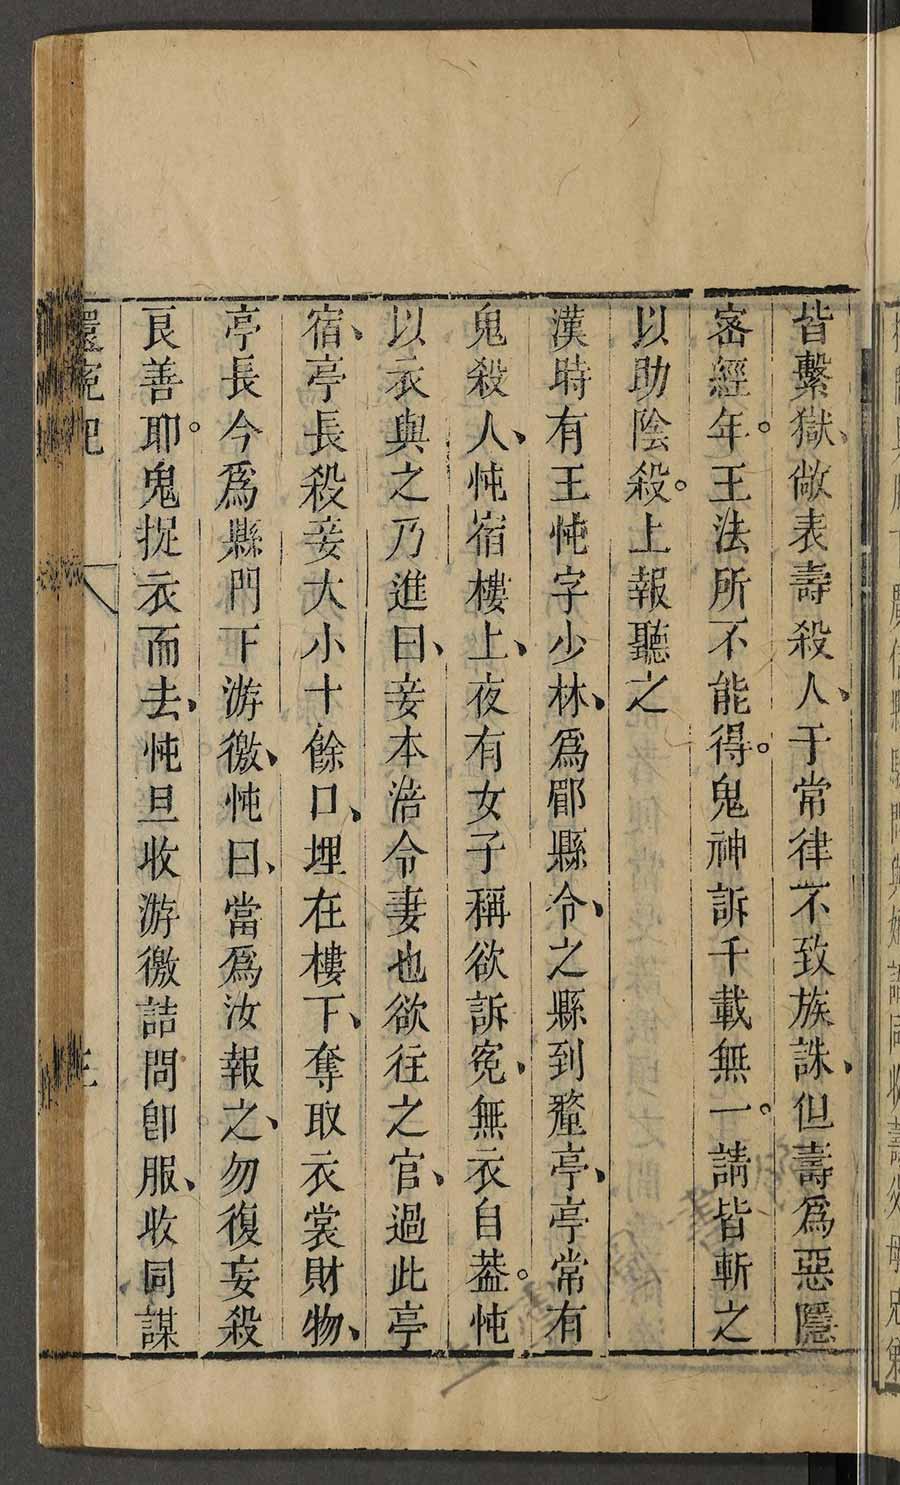 皆繫獄、敞表壽殺人、于常律不致族誅、但壽爲惡隱
密經年。王法所不能得。鬼神訴千載無一。請皆斬之
以助陰殺。上報聽之
漢時有王忳字少林、爲郿縣令、之縣到釐亭、亭常有
鬼殺人、忳宿樓上、夜有女子稱欲訴寃、無衣自葢。忳
以衣與之乃進曰、妾本涪令妻也欲往之官、過此亭
宿、亭長殺妾大小十餘口、埋在樓下、奪取衣裳財物、
亭長今爲縣門下游徼、忳曰、當爲汝報之、勿復妄殺
良善耶。鬼捉衣而去、忳旦收游徼詰問卽服、收同謀
還寃記